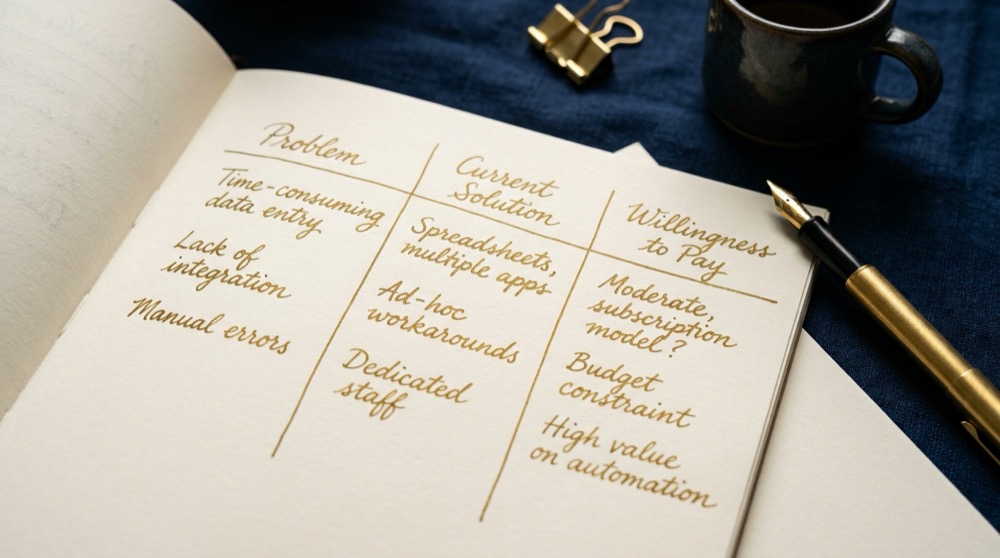 Problem
Time-consuming
data entry
Lack of
integration
Manual errors
Current
Solution
Spreadsheets,
multiple apps
Ad-hoc
workarounds
Dedicated
staff
Willingness
to Pay
Moderate,
subscription
model?
Budget
constraint
High value
on automation